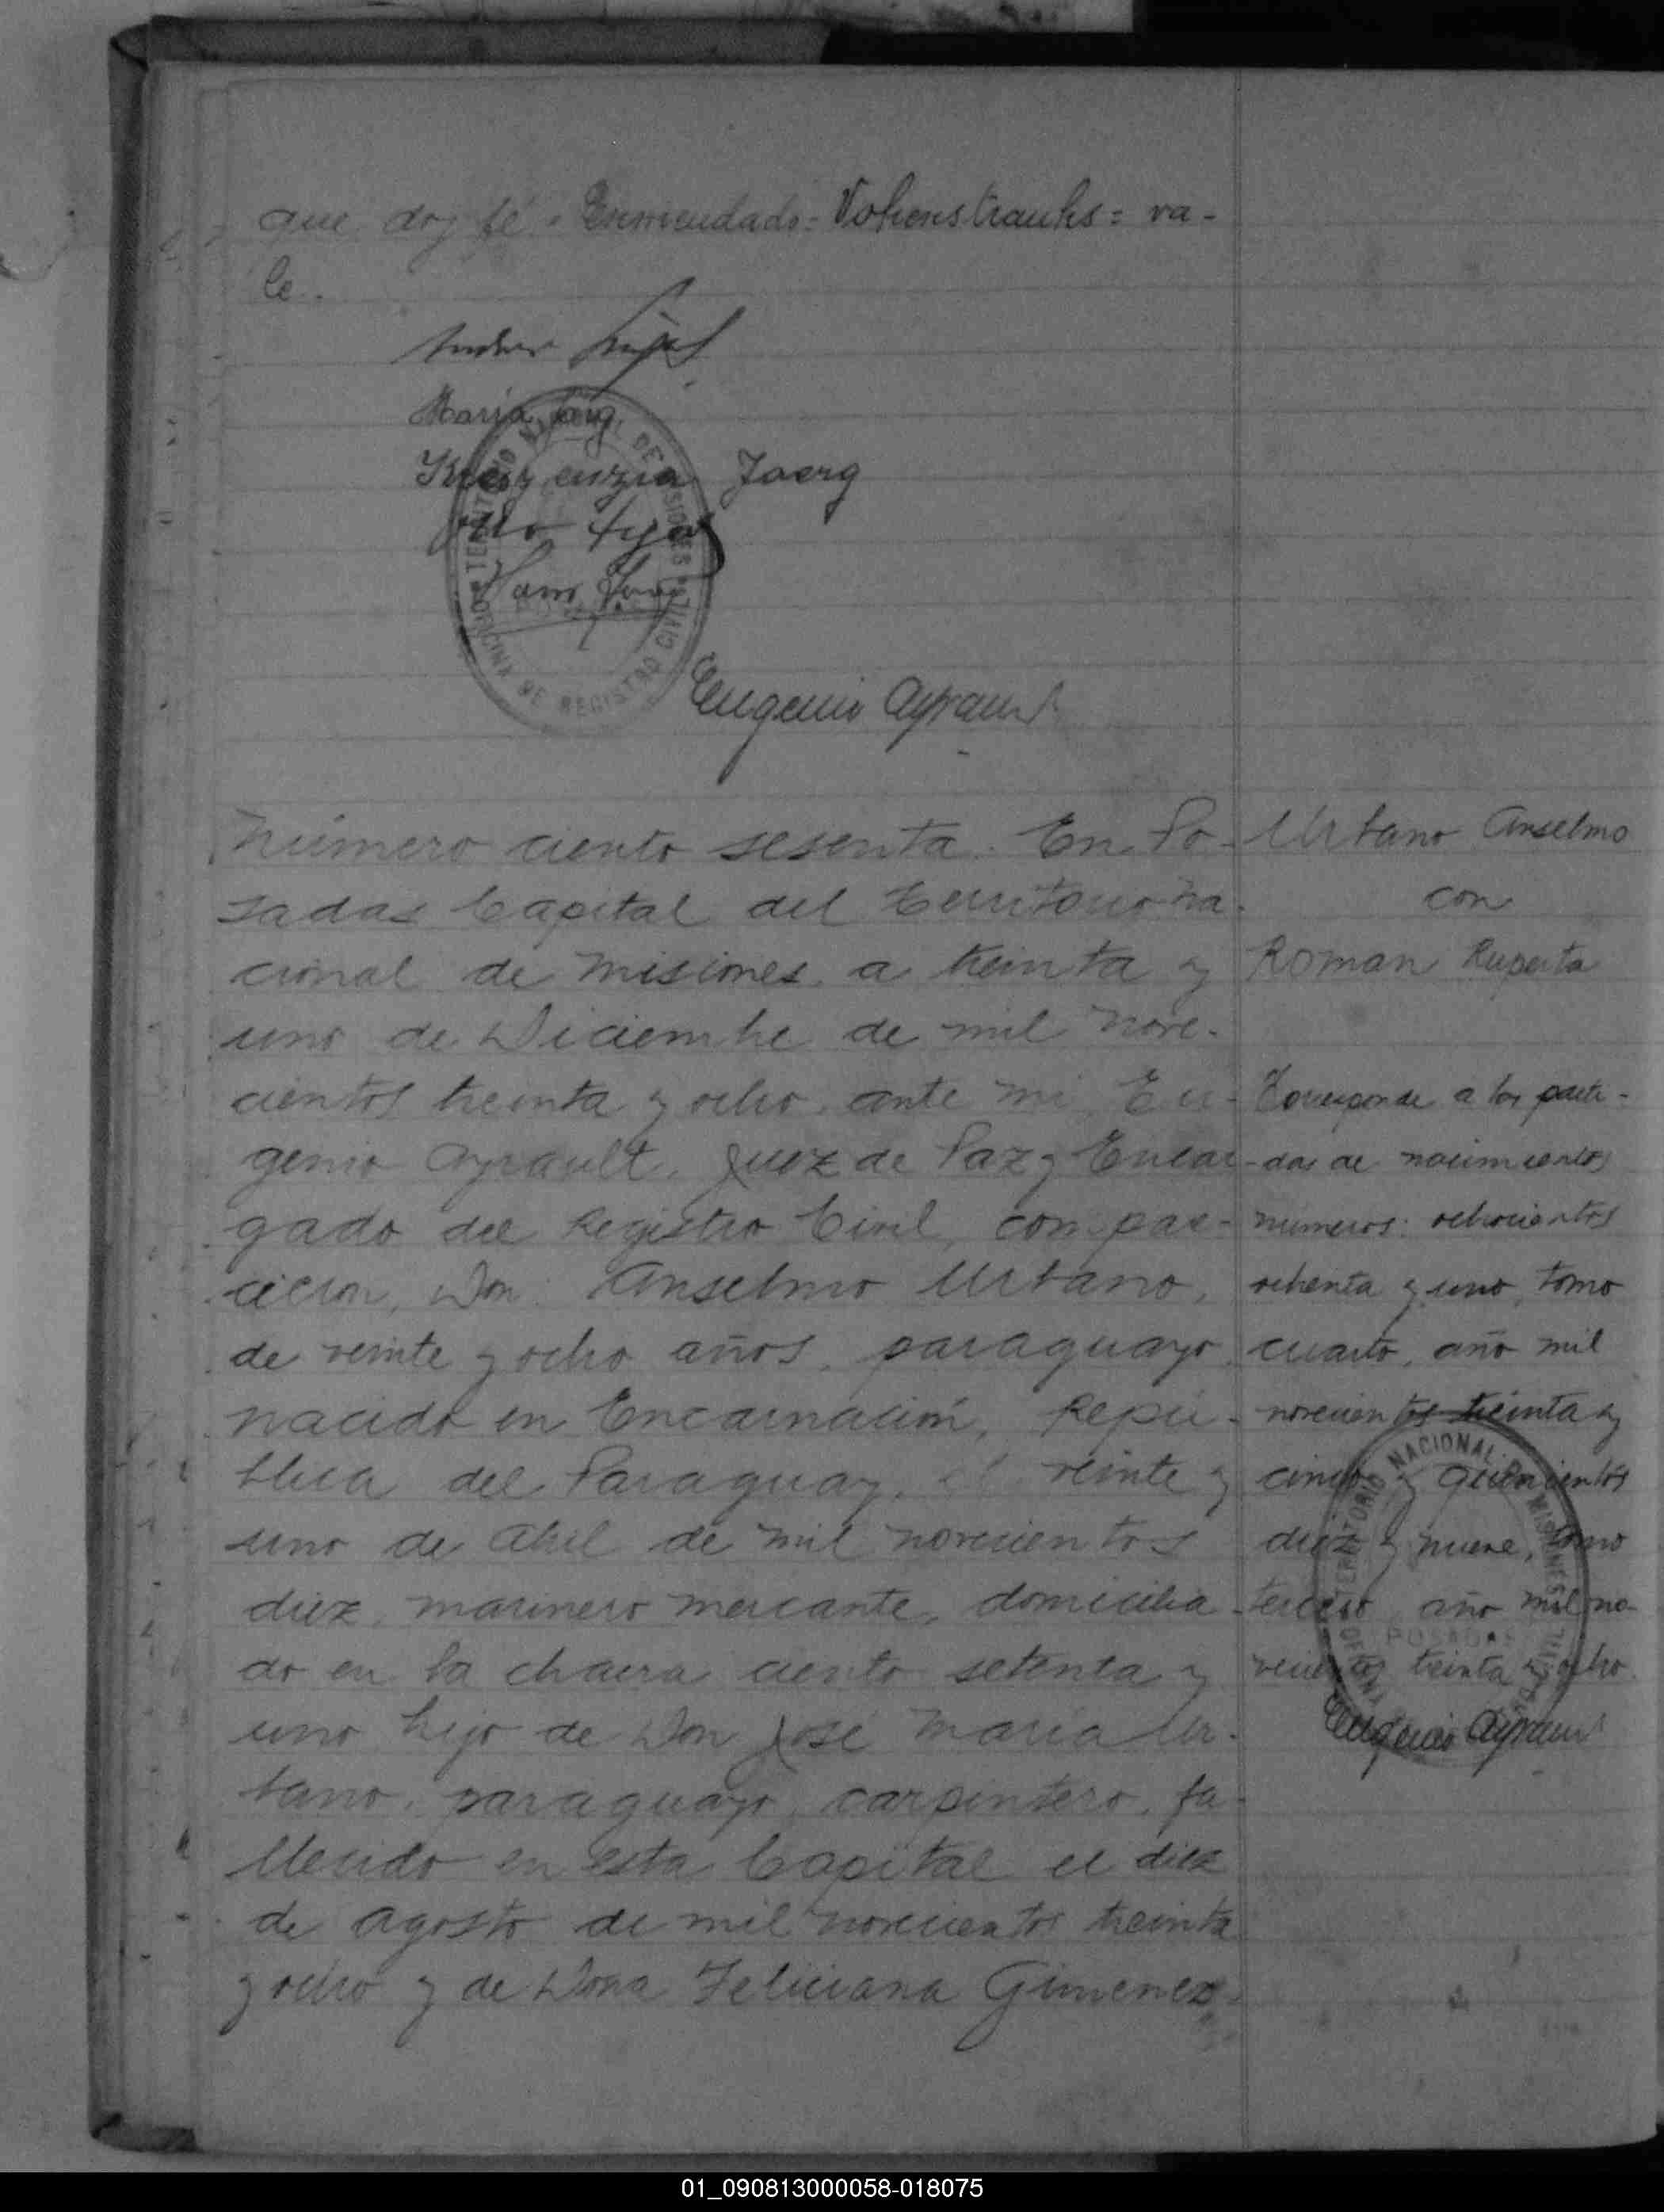 que doy fé. Enmendado = Vohenstrauhs = va-
le.
Maria
Kreszenzia Joerg
Hans
TERRITORIO NACIONAL DE MISIONES
OFICINA DE REGISTRO CIVIL
Eugenio Ayrault
Número ciento sesenta. En Po-
sadas Capital del Territorio Na-
cional de Misiones, a treinta y
uno de Diciembre de mil nove-
cientos treinta y ocho, ante mi Eu-
genio Ayrault, Juez de Paz y Encar-
gado del Registro Civil, compare-
cieron, Don Anselmo Urbano,
de veinte y ocho años, paraguayo
nacido en Encarnación, Repú-
blica del Paraguay, el veinte y
uno de Abril de mil novecientos
diez, marinero mercante, domicilia-
do en la chacra ciento setenta y
uno hijo de Don José María Ur-
bano, paraguayo, carpintero, fa-
llecido en esta Capital el diez
de agosto de mil novecientos treinta
y ocho y de Doña Feliciana Gimenez,
Urbano Anselmo
con
Roman Ruperta
Corresponde a las parti-
das de nacimientos
números: ochocientos
ochenta y uno, tomo
cuarto, año mil
novecientos treinta y
cinco y quinientos
diez y nueve, tomo
tercero, año mil no-
vecientos treinta y ocho.
TERRITORIO NACIONAL DE MISIONES
POSADAS
Eugenio Ayrault
01_090813000058-018075